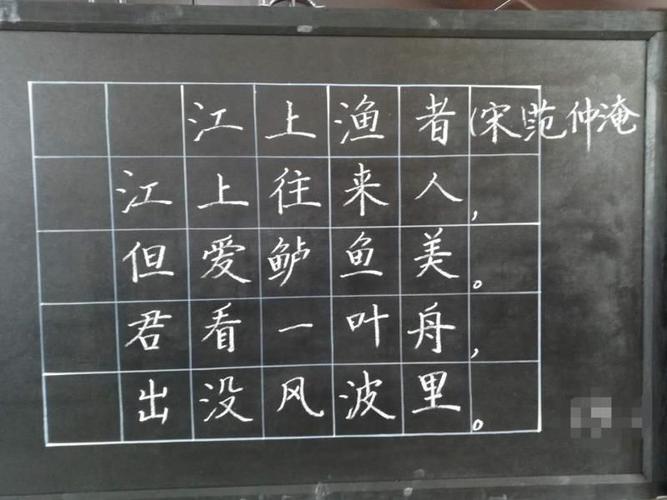 江上渔者(宋)范仲淹
江上往来人,
但爱鲈鱼美。
君看一叶舟,
出没风波里。